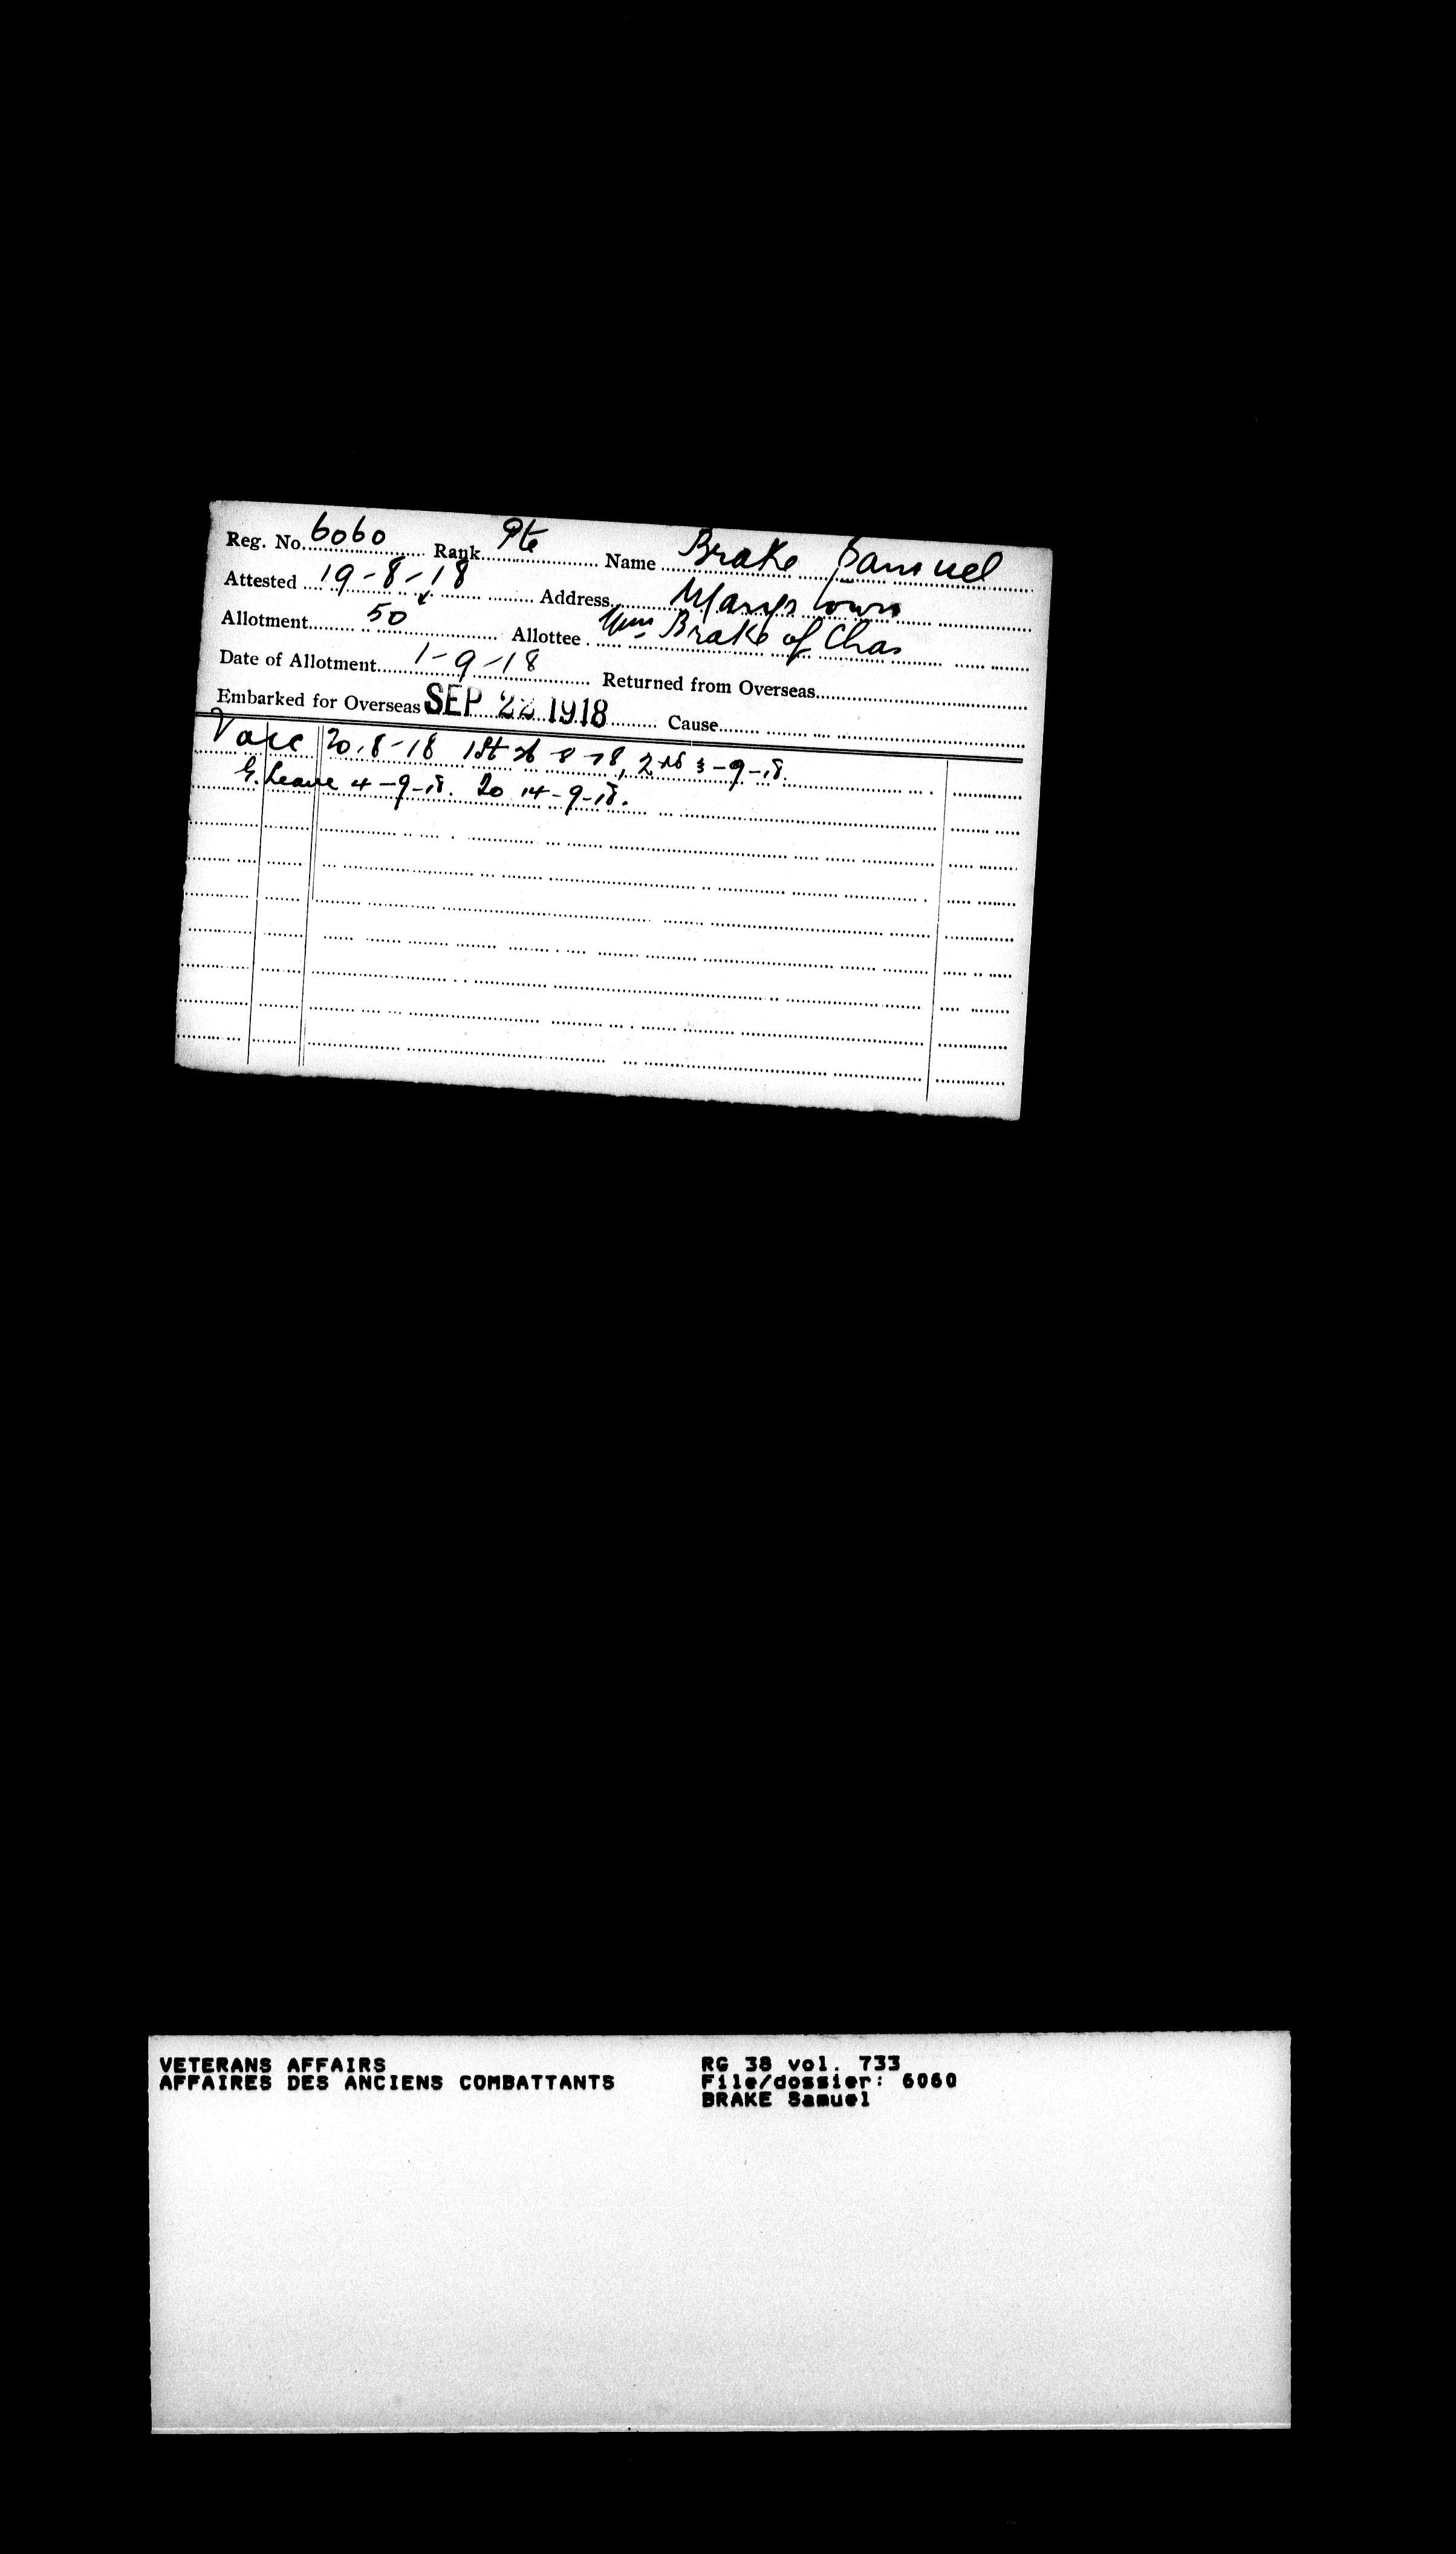 Reg. No. 6060 Rank Pte Name Brake Samuel
Attested 19-8-18 Address Marystown
Allotment 50 Allottee Wm Brake of Chas
Date of Allotment 1-9-18 Returned from Overseas
Embarked for Overseas SEP 22 1918 Cause
Vacc 20.8-18 1st 26-8-18, 2nd 3-9-18.
G. Leave 4-9-18. To 14-9-18.
VETERANS AFFAIRS RG 38 vol. 733
AFFAIRES DES ANCIENS COMBATTANTS File/dossier: 6060
BRAKE Samuel